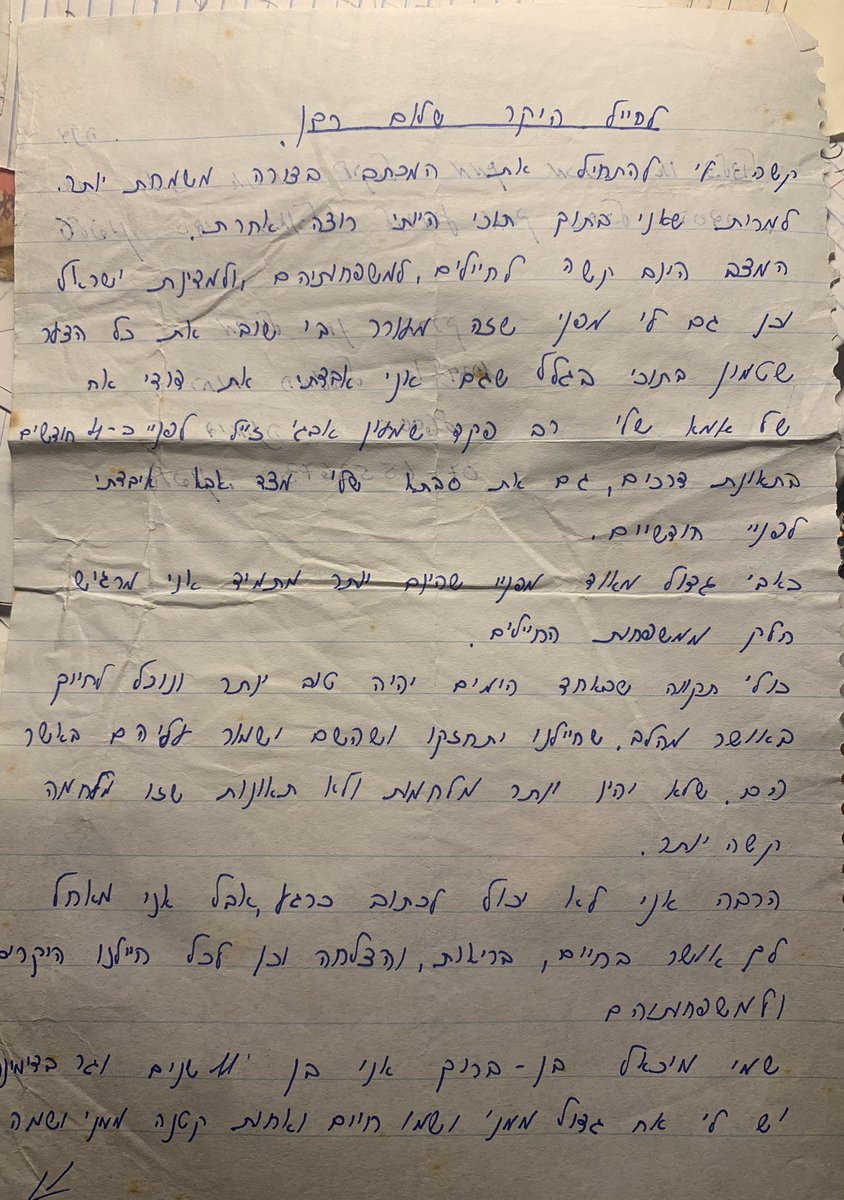 לחייל היקר שלום רב!
קשה לי להתחיל את המכתב בצורה משמחת יותר.
למרות שאני בתוך תוכי הייתי רוצה אחרת.
המצב הינם קשה לחיילים, למשפחותיהם, ולמדינת ישראל
וכן גם לי מפני שזה מעורר בי שוב את כל הצער
שטמון בתוכי בגלל שגם אני אבדתי את דודי אח
של אמא שלי רב פקד שמעון ז"ל לפניי כ-4 חודשים
בתאונת דרכים, גם את סבתא שלי מצד אבא איבדתי
לפניי חודשיים.
כאבי גדול מאוד מפניי שהינם יותר מתמיד אני מרגיש
חלק ממשפחות החיילים.
כולי תקווה שבאחד הימים יהיה טוב יותר ונוכל לחיות
באושר מהלב. שחיילנו יתחזקו ושהשם ישמור עליהם באשר
הם. שלא יהיו יותר מלחמות ולא תאונות שזו מלחמה
קשה יותר.
הרבה אני לא יכול לכתוב כרגע, אבל אני מאחל
לך אושר בחיים, בריאות, והצלחה וכן לכל חיילנו היקרים
ולמשפחותיהם
שמי מיכאל בן-ברוך אני בן 11 שנים וגר בדימונה
יש לי אח גדול ממני ושמו חיים ואחות קטנה ממני ושמה